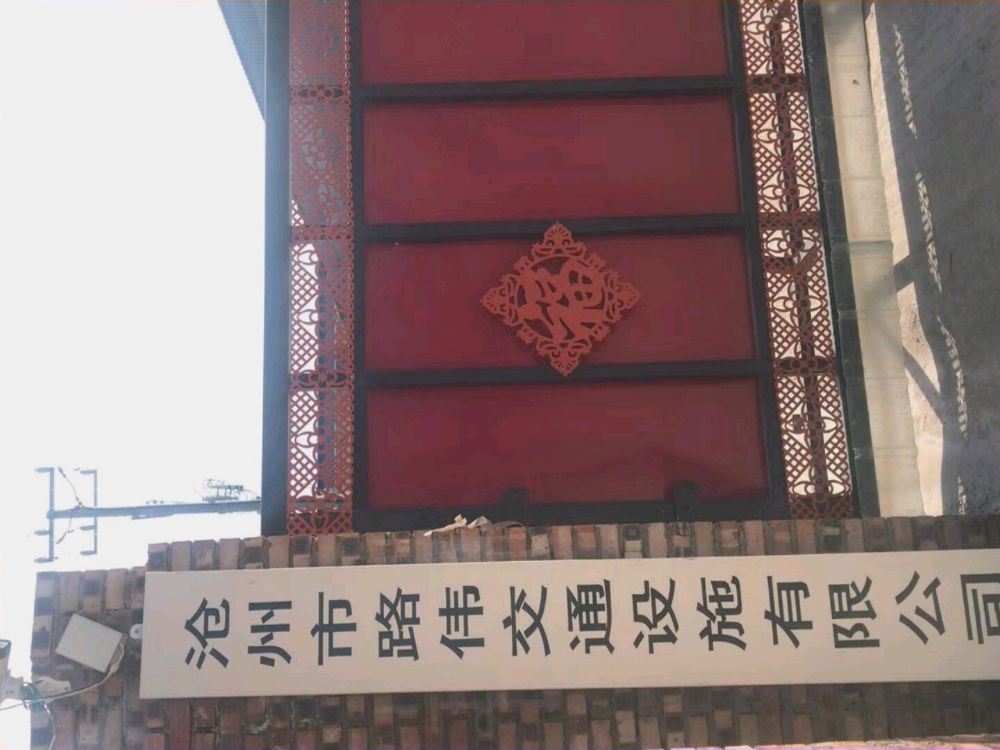 沧州市路伟交通设施有限公司